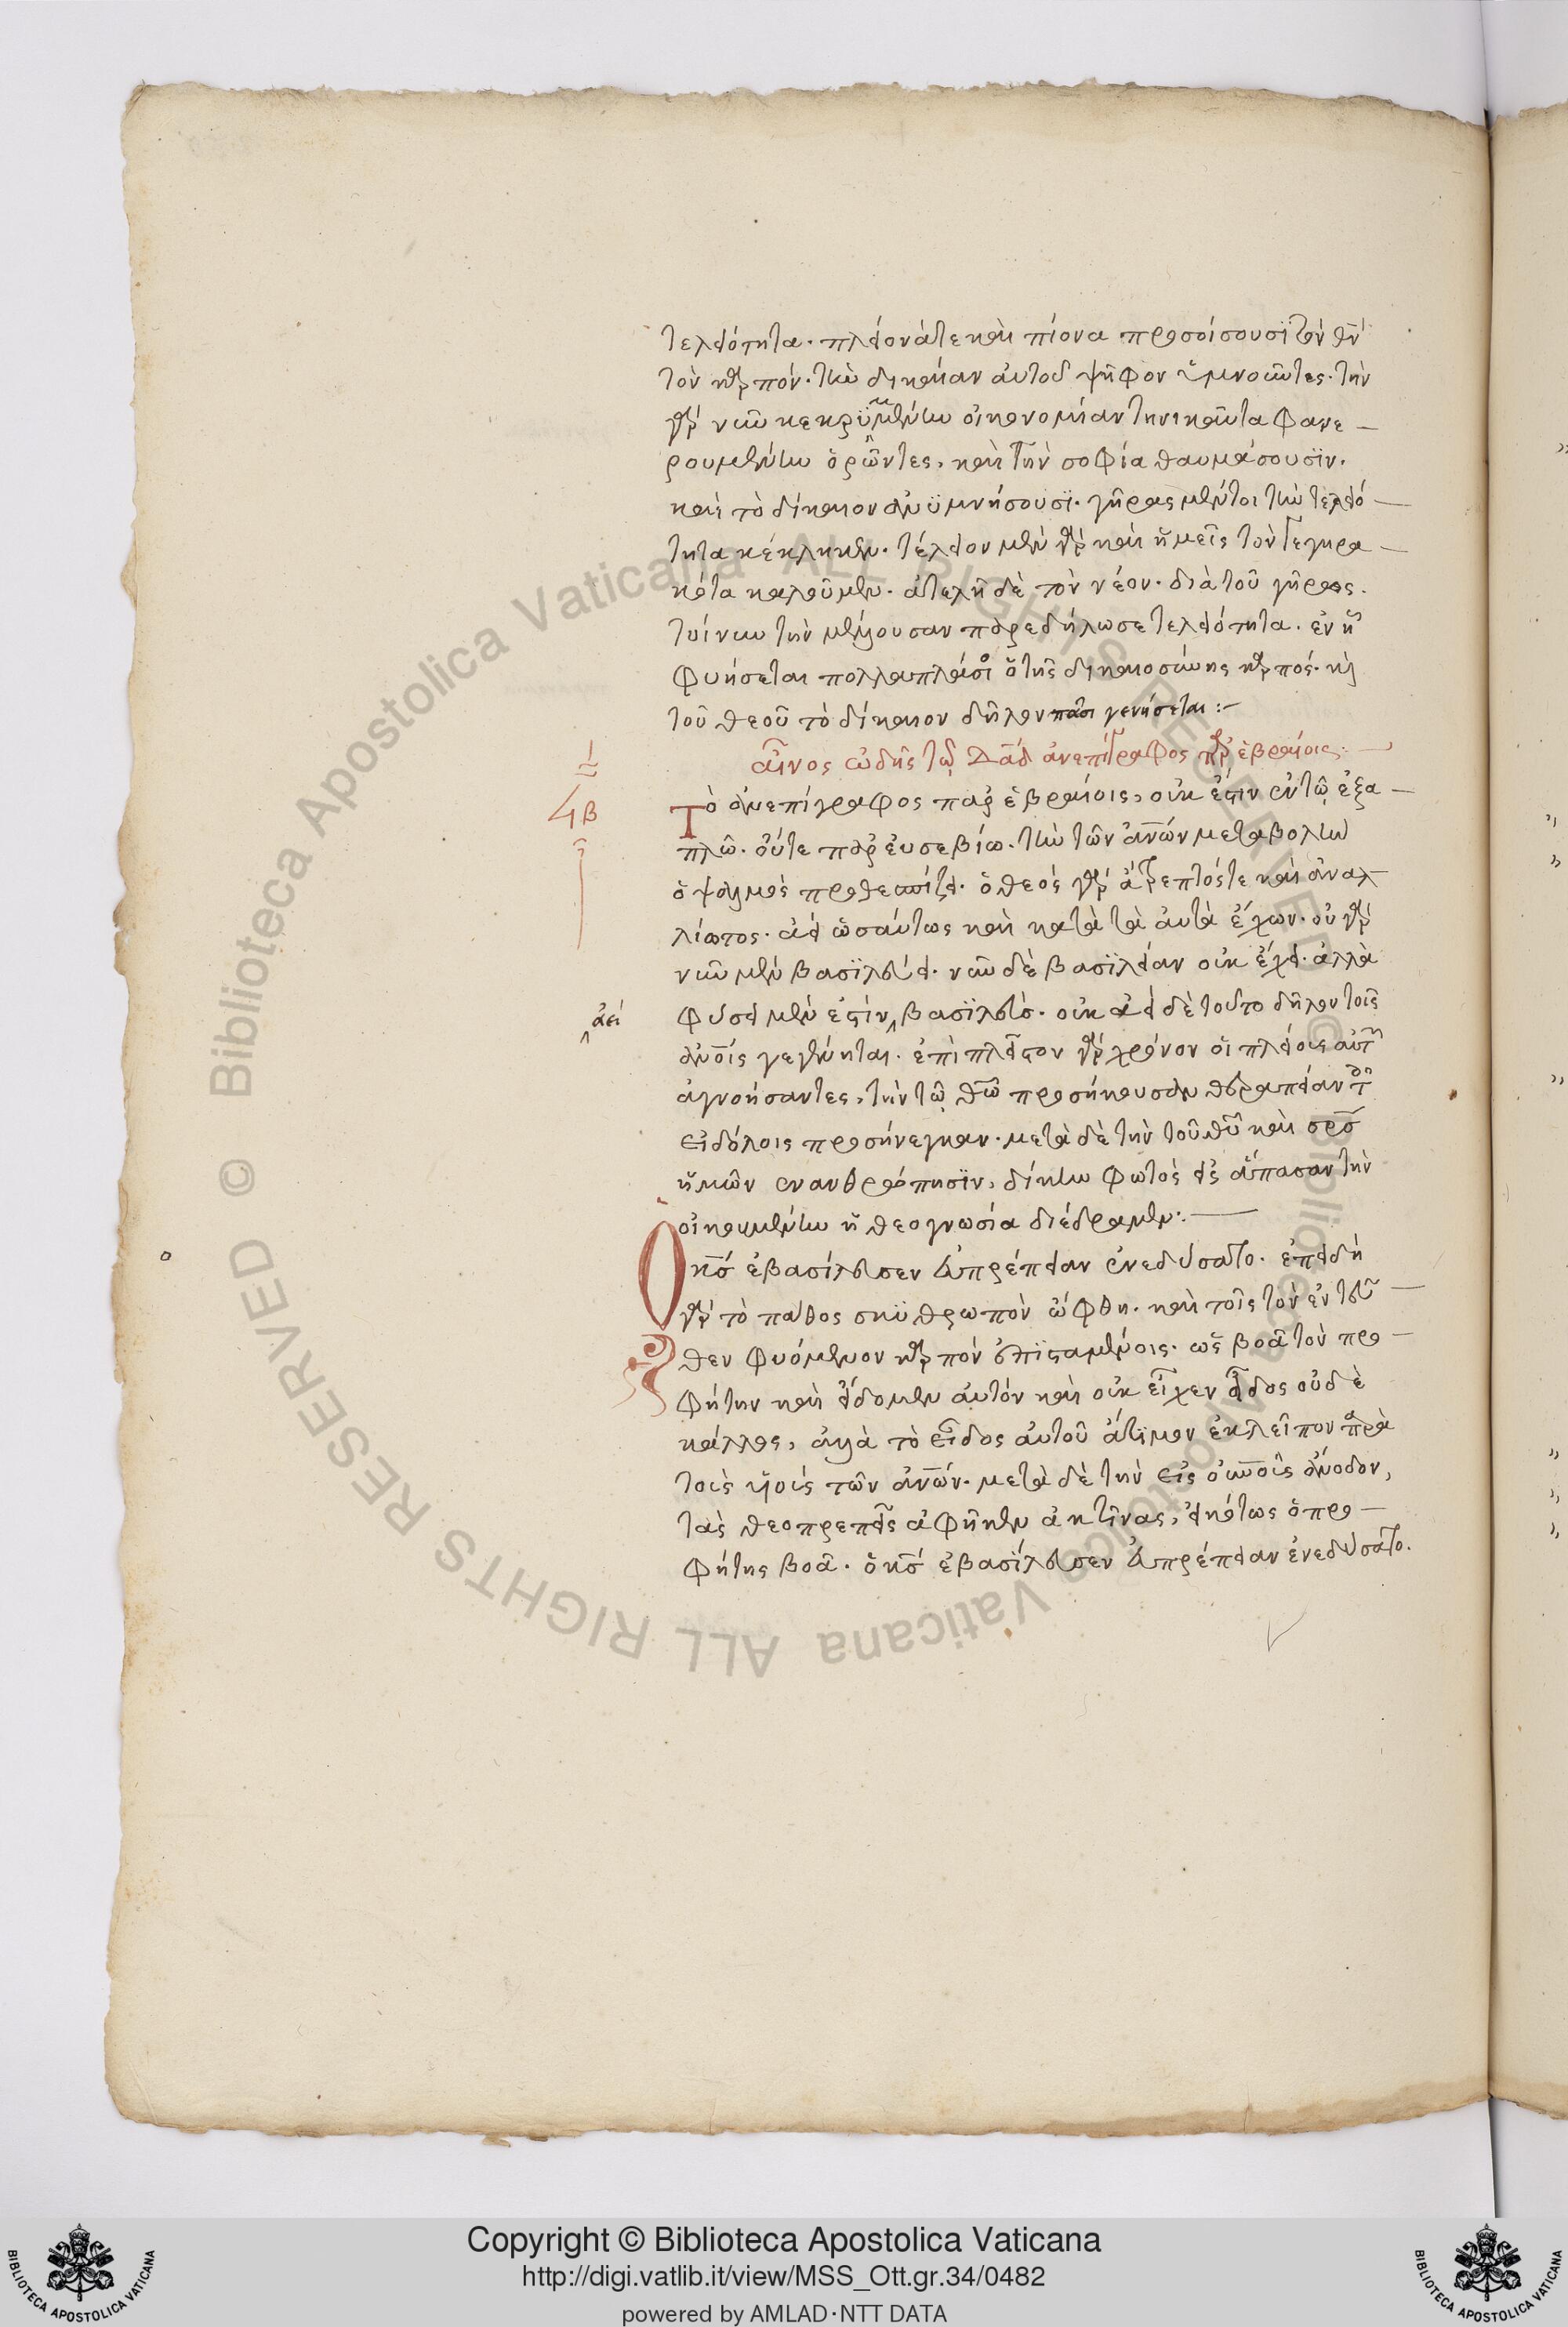 τελειότητα. πλείονά τε καὶ πίονα προσοίσουσϊ τῶ θῶ
τὸν καρπόν. τὴν δικαίαν αὐτοῦ ψῆφον ὑμνοῦντες. τὴν
γὰρ νῦν κεκρϋμμένην οἰκονομίαν τηνικαῦτα φανε –
ρουμένην ὁρῶντες, καὶ τὴν σοφία θαυμάσουσϊν.
καὶ τὸ δίκαιον ἀνϋμνήσουσϊ. γῆρας μέντοι τὴν τελειό –
τητα κέκληκεν. τέλειον μὲν γὰρ καὶ ἡμεῖς τὸν γεγηρα –
κότα καλοῦμεν. ἀτελῆ δὲ τὸν νέον. διὰ τοῦ γῆρως
τοίνυν τὴν μένουσαν παρεδήλωσε τελειότητα. ἐν ᾗ
φυήσεται πολλαπλάσιος ὁ τῆς δικαιοσύνης καρπός. καὶ
τοῦ θεοῦ τὸ δίκαιον δῆλον πᾶσι γενήσεται :–
αἶνος ὠδῆς τῶ Δαδ ἀνεπίγραφος παρ ἑβραίοις. —
ϟβ
Τὸ ἀνεπίγραφος παρ ἑβραίοις, οὐκ ἔστιν ἐν τῶ ἑξα –
πλῶ. οὔτε παρ εὐσεβίω. τὴν τῶν ἀνῶν μεταβολὴν
ὁ ψαλμὸς προθεσπίζει. ὁ θεὸς γὰρ ἄτρεπτός τε καὶ ἀναλ
λίωτος. ἀεὶ ὡσαύτως καὶ κατὰ τὰ αὐτὰ ἔχων. οὐ γὰρ
νῦν μὲν βασϊλεύει. νῦν δὲ βασϊλείαν οὐκ ἔχει. ἀλλὰ
ἀεί
φύσει μὲν ἐστὶν βασϊλεύς. οὐκ ἀεὶ δὲ τοῦτο δῆλον τοῖς
ἀνοῖς γεγένηται. ἐπὶ πλεῖστον γὰρ χρόνον οἱ πλείους αὐτῶν
ἀγνοήσαντες, τὴν τῶ θῶ προσήκουσαν θεραπείαν τοῖς
εἰδώλοις προσήνεγκαν. μετὰ δὲ τὴν τοῦ θῦ καὶ σρσ
ἡμῶν ἐνανθρώπησϊν, δίκην φωτὸς εἰς ἅπασαν τὴν
οἰκουμένην ἡ θεογνωσία διέδραμεν. —
Ὁ κσ ἐβασίλευσεν εὐπρέπειαν ἐνεδύσατο. ἐπειδὴ
γὰρ τὸ πάθος σκϋθρωπὸν ὤφθη. καὶ τοῖς τὸν ἐντεῦ –
θεν φυόμενον καρπὸν ἐπϊσταμένοις. ὡς βοᾶ τὸν προ –
φήτην καὶ εἴδομεν αὐτόν καὶ οὐκ εἶχεν εἶδος οὐδὲ
κάλλος, ἀλλὰ τὸ εἶδος αὐτοῦ ἄτϊμον ἐκλεῖπον παρὰ
τοὺς υἱοὺς τῶν ἀνῶν. μετὰ δὲ τὴν εἰς οὐνοὺς ἄνοδον,
τὰς θεοπρεπεῖς ἀφῆκεν ἀκτῖνας, εἰκότως ὁ προ –
φήτης βοᾶ. ὁ κσ ἐβασίλευσεν εὐπρέπειαν ἐνεδύσατο.
Copyright © Biblioteca Apostolica Vaticana
http://digi.vatlib.it/view/MSS_Ott.gr.34/0482
powered by AMLAD·NTT DATA